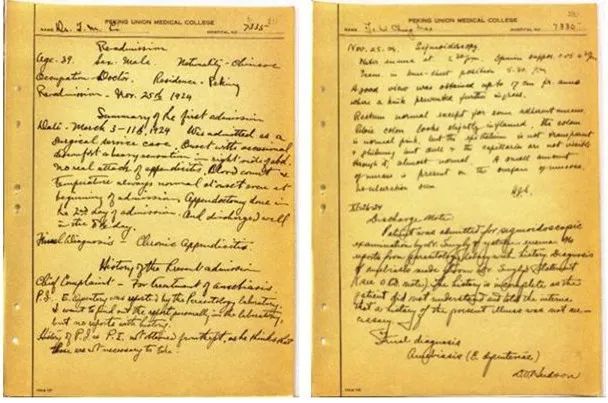 PEKING UNION MEDICAL COLLEGE
NAME Dr. HOSPITAL NO. 7335
Readmission
Age. 39. Sex. Male. Nationality - Chinese
Occupation - Doctor. Residence - Peking
Readmission - Nov. 25th 1924
Summary of the first admission
Date - March 3 - 11th, 1924 Was admitted as a
Surgical service case. Onset with occasional
discomfort & heavy sensation in right side of abd.
no real attack of appendicitis. Blood count &
temperature always normal at onset even at
beginning of admission. Appendectomy done in
the 2nd day of admission. And discharged well
in the 8th day.
Final Diagnosis - Chronic Appendicitis.
History of the Present admission
Chief Complaint - For treatment of amoebiasis.
P.I. E. dysentery was reported by the Parasitology laboratory.
I want to find out the report personally in the laboratory,
but no reports with history.
History of P.I. & P.I. not obtained from the pt, as he thinks that
those are not necessary to take.
PEKING UNION MEDICAL COLLEGE
NAME HOSPITAL NO. 7335
Nov. 25. 24. Sigmoidoscopy
Water enema at 2:30 pm. Opium suppos.
Exam. in knee-chest position 5:30 pm
A good view was obtained up to 17 cm fr. anus
where a kink prevented further ingress.
Rectum normal except for some adherent mucus.
Pelvic colon looks slightly inflamed, the colour
is normal pink, but the epithelium is not transparent
& glistening but dull & the capillaries are not visible
through it, almost normal. A small amount
of mucus is present on the surface of mucosa.
no ulceration seen
XI-26-24
Discharge Note
Patient was admitted for sigmoidoscopic
examination by Dr. yesterday evening. No
reports from parasitology with history. Diagnosis
of amoebiasis made from Dr. statement
(see O.D. notes). The history is incomplete as the
patient did not understand and told the interne
that a history of the present illness was not nec-
essary.
Final diagnosis
Amoebiasis (E. dysenteriae)
Hudson